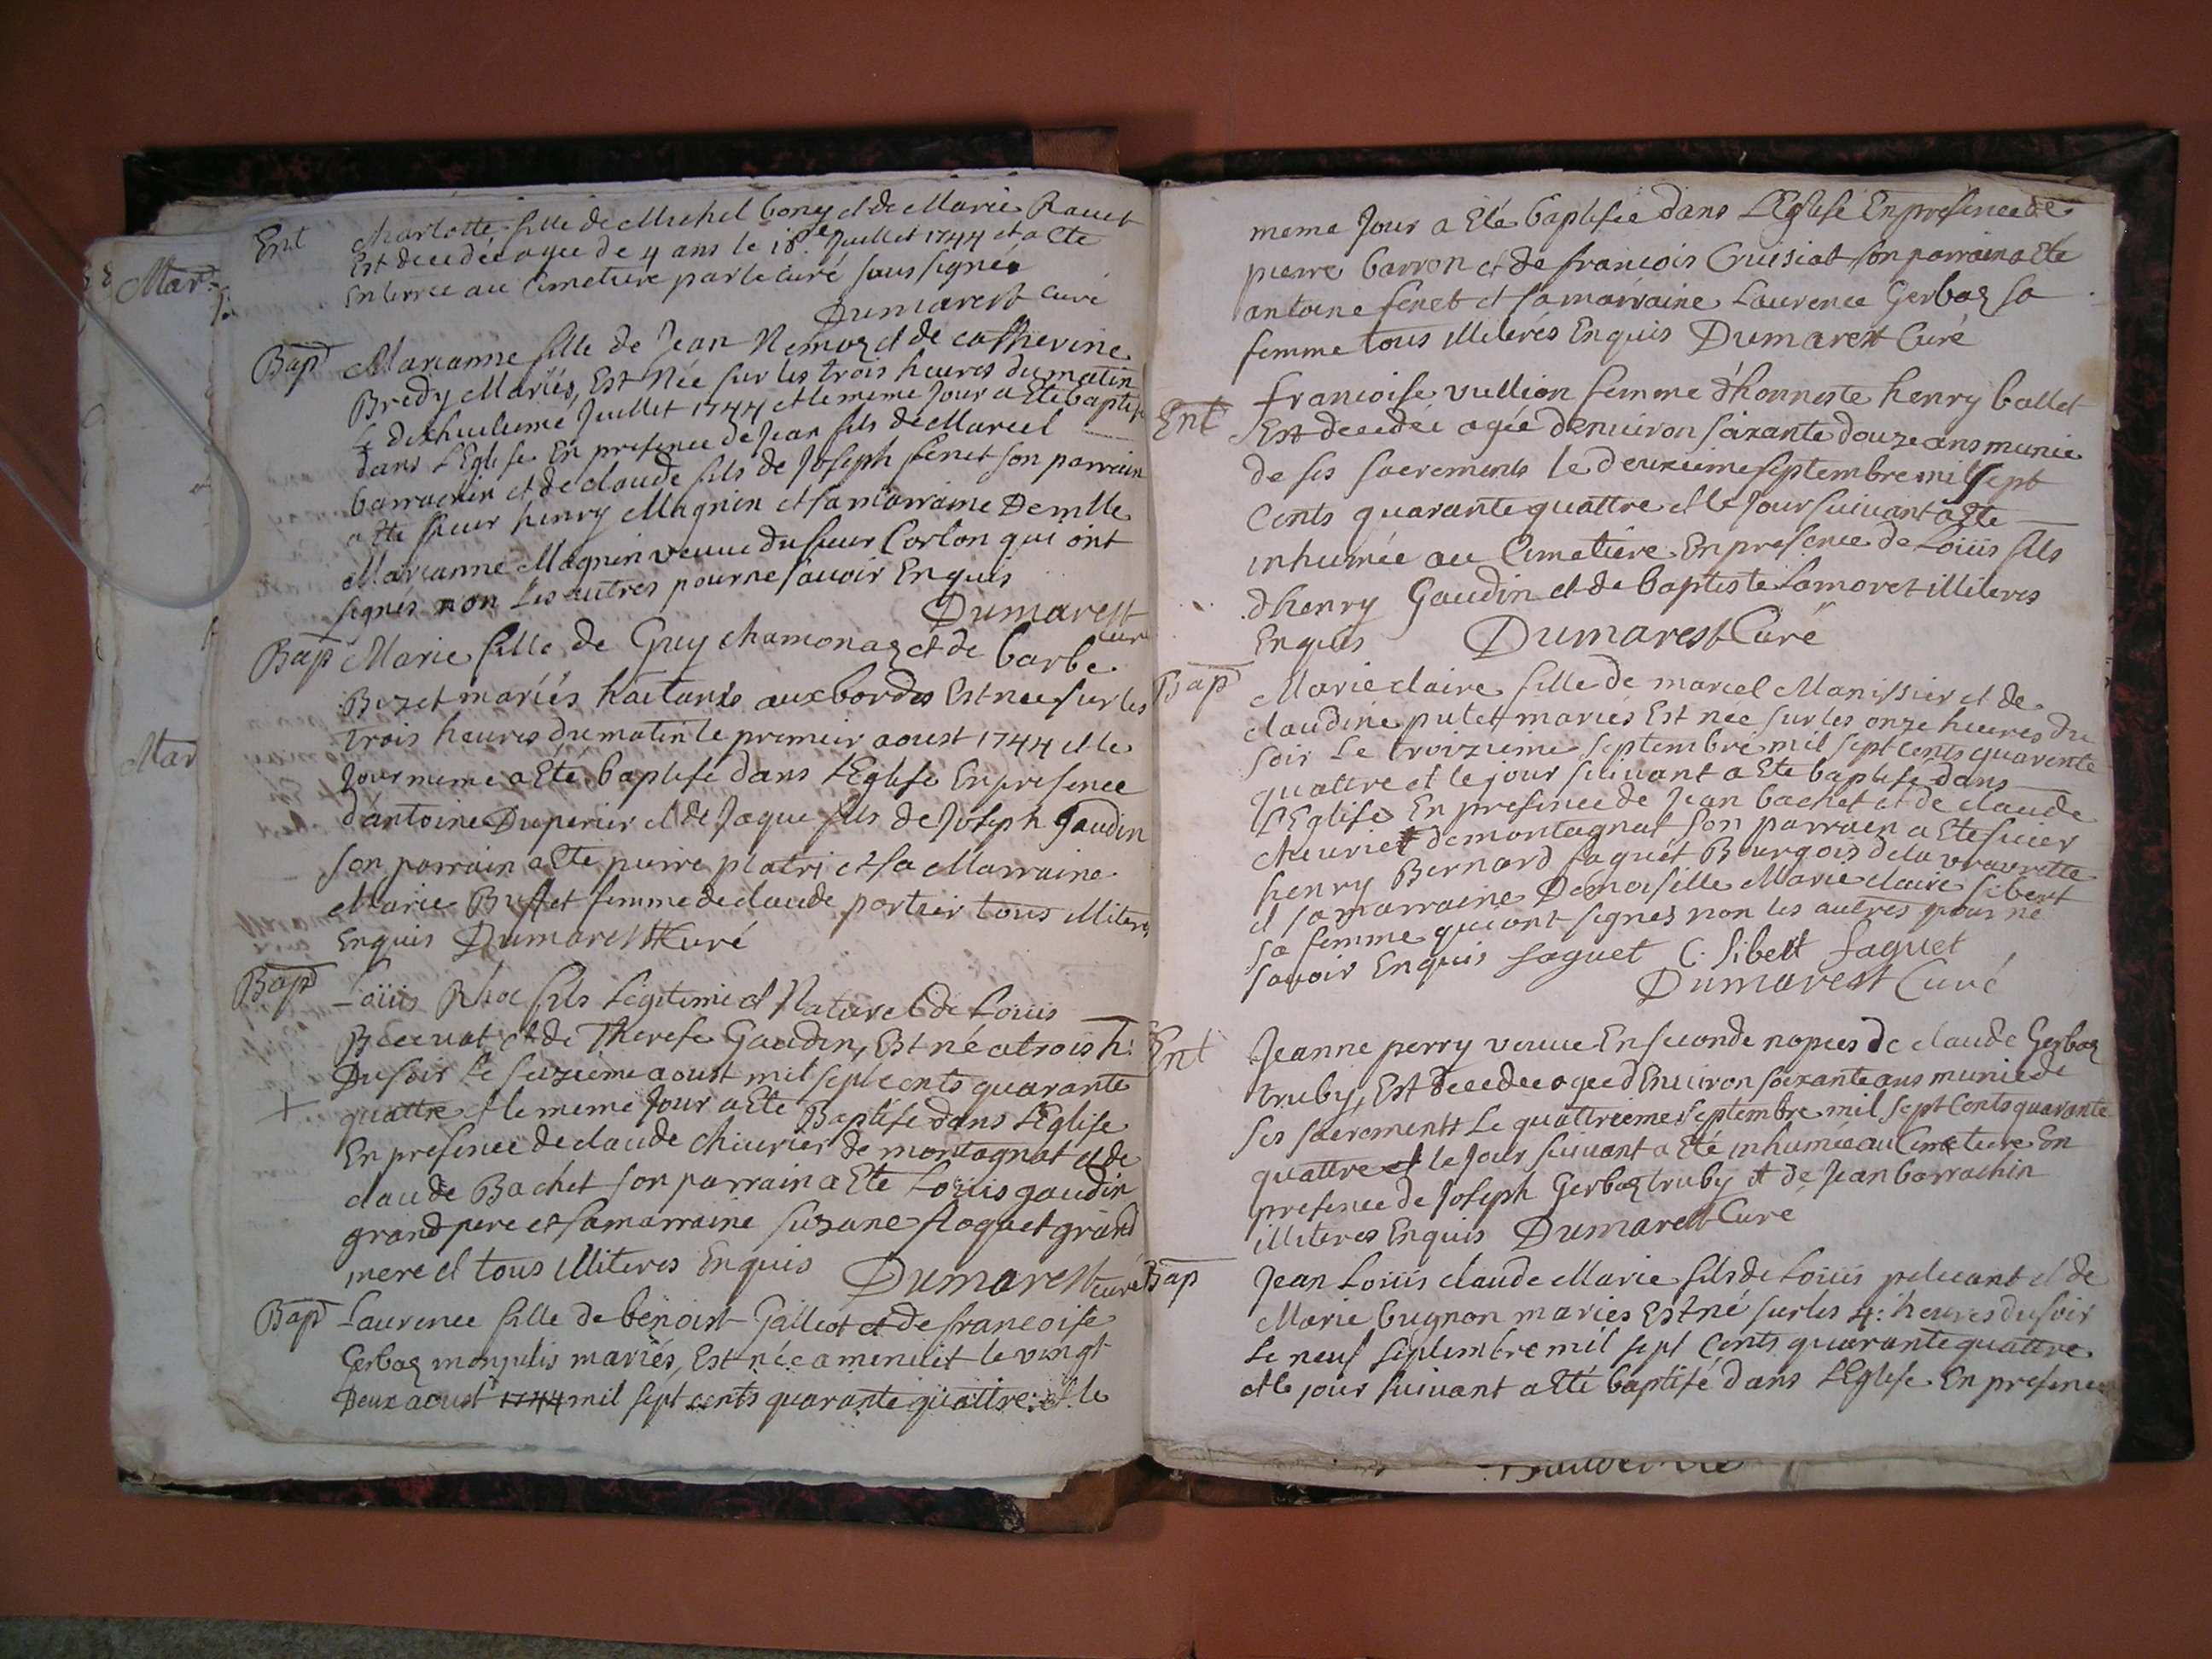 Mar
Mar
Ent Charlotte fille de Michel bony et de Marie Ravet
Est decedée agee de 4 ans le 18e Juillet 1744 et a Ete
Enterree au Cimetiere par le curé sous signé
Dumarest curé
Bap Marianne fille de Jean Nemoz et de catherine
Bredy Mariés, Est Née sur les trois heures du matin
le dixhuitieme Juillet 1744 et le meme Jour a Ete baptisé
dans L'Eglise En presence de Jean fils de Marcel
barrachin et de claude fils de Joseph fenet son parrain
a Ete sieur henry Magnin et sa marraine Demlle
Marianne Magnin veuve du sieur Corlon qui ont
signés non Les autres pour ne savoir Enquis
Dumarest
curé
Bap Marie fille de Guy chamonaz et de barbe
Bozet mariés haitants aux bordes Est nee sur les
trois heures du matin le premier aoust 1744 et le
Jour meme a Eté baptisé dans L'Eglise En presence
d'antoine Duperier et de Jaque fils de Joseph Gaudin
son parrain a Ete pierre platri et sa Marraine
Marie Buffet femme de claude portier tous illiteres
Enquis Dumarest Curé
Bap Loüis Roc fils Legitime et Naturel de Loüis
et de Therese Gaudin, Est né a trois h:
Du soir Le seizieme aoust mil sept cents quarante
+ quattre et le meme Jour a Ete Baptisé dans L'Eglise
En presence de claude cheurier de montagnat et de
claude Bachet son parrain a Ete Loüis gaudin
grand pere et sa marraine suzane floquet grand
mere et tous illiteres Enquis Dumarest curé
Bap Laurence fille de benoist Galliot et de francoise
Gerbaz monjulis mariés, Est née a menuit le vingt
Deux aoust 1744 mil sept cents quarante quattre et le
meme Jour a Eté baptisée dans L'Eglise En presence de
pierre barron et de francois Cruisiat son parrain a Ete
antoine fenet et sa marraine Laurence Gerbaz sa
femme tous illiterés Enquis Dumarest Curé
Ent francoise vullion femme d'honneste henry ballet
Est decedée agée d'enuiron soixante douze ans munie
de ses sacrements le deuxieme septembre mil sept
Cents quarante quattre et le Jour suiuant a Ete
inhumée au Cimetiere En presence de Loüis fils
d'henry Gaudin et de baptiste Lamoret illiteres
Enquis Dumarest Curé
Bap Marie claire fille de marcel Manissier et de
claudine putet mariés Est née sur les onze heures du
soir Le troizieme septembre mil sept cents quarente
quattre et le jour suiuant a Ete baptisé dans
L'Eglise En presence de Jean bachet et de claude
cheurier de montagnat son parrain a Ete sieur
henry Bernard faguet Bourgois de la vauvrette
et sa marraine Demoiselle Marie claire sibert
sa femme qui ont signes non les autres pour ne
savoir Enquis faguet C. sibert faguet
Dumarest Curé
Ent Jeanne perry veuue En seconde nopces de claude Gerbaz
truby, Est decedee agee d'Enuiron soixante ans munie de
ses sacrements Le quattrieme septembre mil sept Cents quarante
quattre et le Jour suiuant a Eté inhumée au Cimetiere En
presence de Joseph Gerbaz truby et de Jean barrachin
illiteres Enquis Dumarest Curé
Bap Jean Loüis claude Marie fils de Loüis pelicant et de
Marie bugnon mariés Est né sur les 4: heures du soir
Le neuf septembre mil sept Cents quarante quattre
et le jour suiuant a Eté baptisé dans L'Eglise En presence